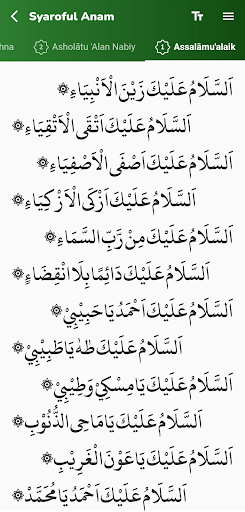 Syaroful Anam
hna
2 Asholātu 'Alan Nabiy
1 Assalāmu'alaik
اَلسَّلَامُ عَلَيْكَ زَيْنَ الْاَنْبِيَاءِ ۞
اَلسَّلَامُ عَلَيْكَ اَتْقَى الْاَتْقِيَاءِ ۞
اَلسَّلَامُ عَلَيْكَ اَصْفَى الْاَصْفِيَاءِ ۞
اَلسَّلَامُ عَلَيْكَ اَزْكَى الْاَزْكِيَاءِ ۞
اَلسَّلَامُ عَلَيْكَ مِنْ رَبِّ السَّمَاءِ ۞
اَلسَّلَامُ عَلَيْكَ دَائِمًا بِلَا انْقِضَاءٍ ۞
اَلسَّلَامُ عَلَيْكَ اَحْمَدُ يَا حَبِيْبِيْ ۞
اَلسَّلَامُ عَلَيْكَ طٰهٰ يَا طَبِيْبِيْ ۞
اَلسَّلَامُ عَلَيْكَ يَا مِسْكِيْ وَطِيْبِيْ ۞
اَلسَّلَامُ عَلَيْكَ يَا مَاحِى الذُّنُوْبِ ۞
اَلسَّلَامُ عَلَيْكَ يَا عَوْنَ الْغَرِيْبِ ۞
اَلسَّلَامُ عَلَيْكَ اَحْمَدُ يَا مُحَمَّدْ ۞